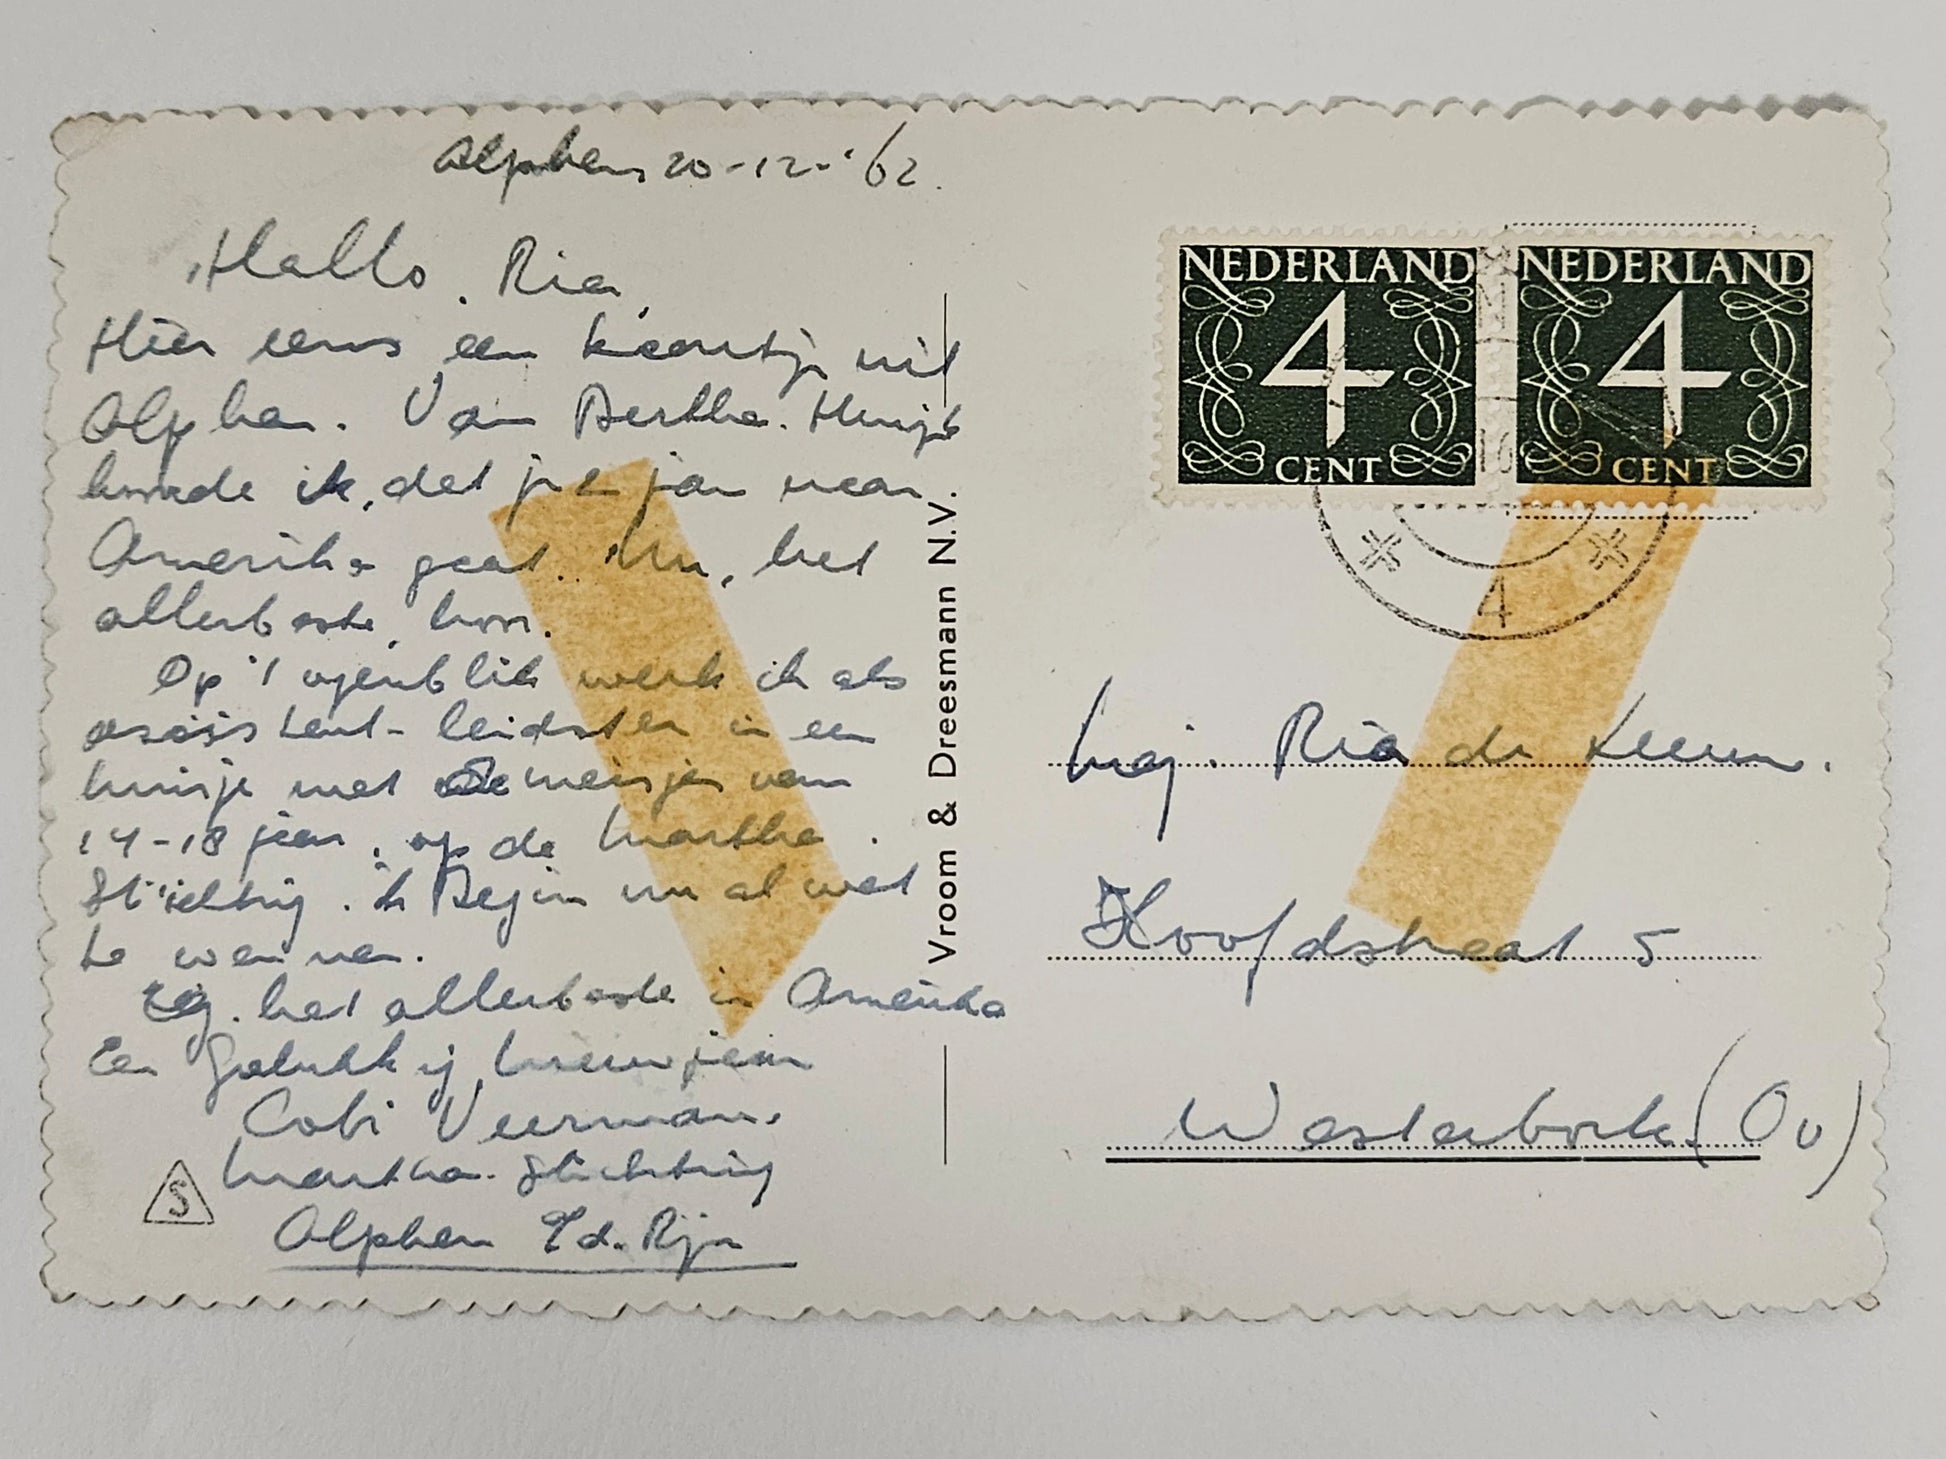 Alphen, 20-12-'62.
Hallo, Ria,
Hier eens een kaartje uit
Alphen. Van Bertha
hoorde ik, dat je jan naar
Amerika gaat. Nu, het
allerbeste, hoor.
Op 't ogenblik werk ik als
assistent-leidster in een
huisje met meisjes van
14-18 jaar, op de Martha
Stichting. ik Begin nu al wat
te wennen.
het allerbeste in Amerika
Een Gelukkig nieuwjaar
Cobi Veerman.
Martha-Stichting
Alphen a/d. Rijn
S
Vroom & Dreesmann N.V.
NEDERLAND
4
CENT
NEDERLAND
4
CENT
4
Mej. Ria de
Hoofdstraat 5
Westerbork (Ov)